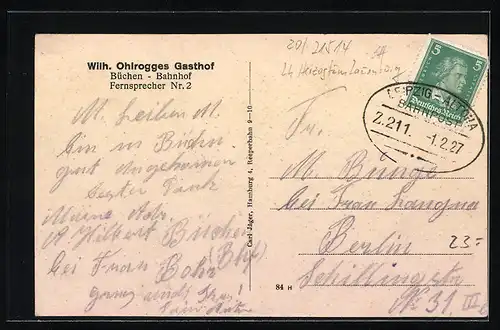 Wilh. Ohlrogges Gasthof
Büchen - Bahnhof
Fernsprecher Nr. 2
M. lieben M.
bin in Büchen
gut angekommen
besten Dank
Meine Adr.
Büchen
bei Frau
(Bhf)
20/21514
Lk Herzogtum Lauenburg
5 5
Deutsches Reich
LEIPZIG-ALTONA
BAHNPOST
Z.211. -1.2.27
Fr.
M. Bünge
bei Frau
Berlin
Schillingstr
No 31 III
23=
Carl Jäger, Hamburg 4, Reeperbahn 9-10
84 H